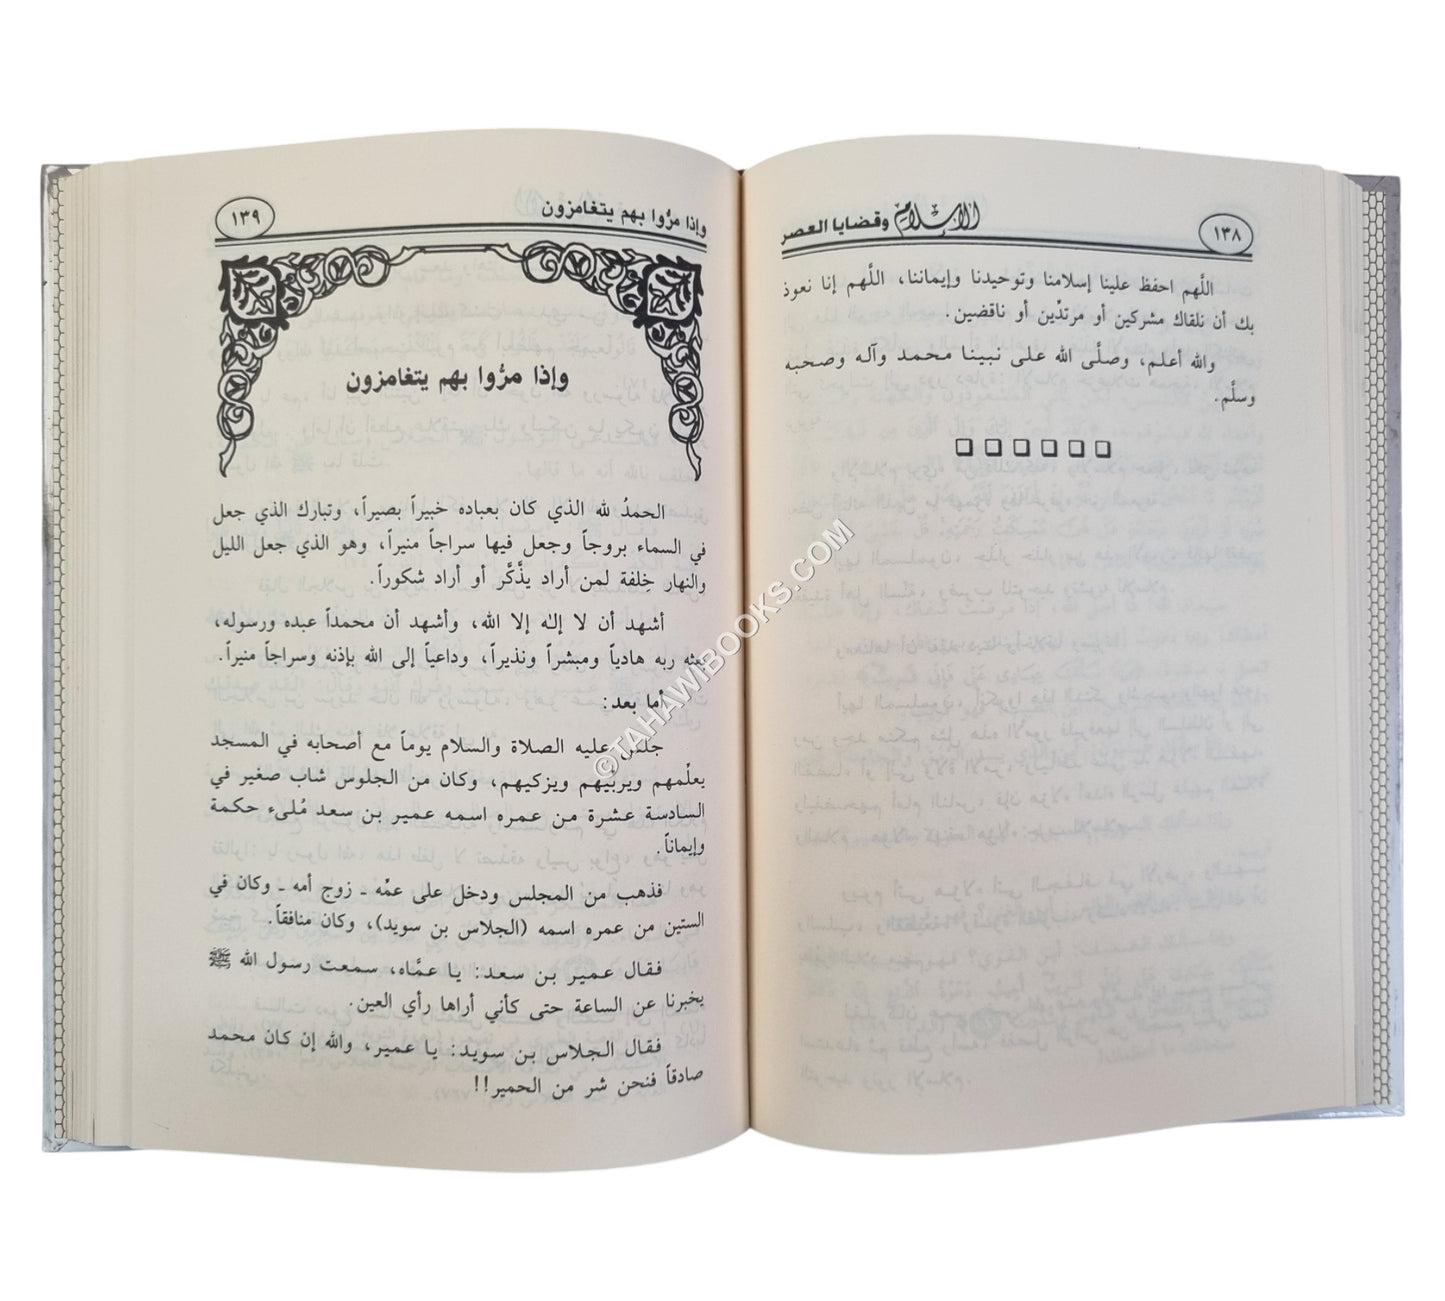 ١٣٨
الإسلام وقضايا العصر
اللَّهم احفظ علينا إسلامنا وتوحيدنا وإيماننا، اللَّهم إنا نعوذ
بك أن نلقاك مشركين أو مرتدِّين أو ناقضين.
والله أعلم، وصلَّى الله على نبينا محمد وآله وصحبه
وسلَّم.
وإذا مرُّوا بهم يتغامزون
١٣٩
وإذا مرُّوا بهم يتغامزون
الحمدُ لله الذي كان بعباده خبيراً بصيراً، وتبارك الذي جعل
في السماء بروجاً وجعل فيها سراجاً منيراً، وهو الذي جعل الليل
والنهار خِلفة لمن أراد يذَّكَّر أو أراد شكوراً.
أشهد أن لا إله إلا الله، وأشهد أن محمداً عبده ورسوله،
بعثه ربه هادياً ومبشراً ونذيراً، وداعياً إلى الله بإذنه وسراجاً منيراً.
أما بعد:
جلس عليه الصلاة والسلام يوماً مع أصحابه في المسجد
يعلِّمهم ويربِّيهم ويزكيهم، وكان من الجلوس شاب صغير في
السادسة عشرة من عمره اسمه عمير بن سعد مُلىء حكمة
وإيماناً.
فذهب من المجلس ودخل على عمِّه ـ زوج أمه ـ وكان في
الستين من عمره اسمه (الجلاس بن سويد)، وكان منافقاً.
فقال عمير بن سعد: يا عمَّاه، سمعت رسول الله ﷺ
يخبرنا عن الساعة حتى كأني أراها رأي العين.
فقال الجلاس بن سويد: يا عمير، والله إن كان محمد
صادقاً فنحن شر من الحمير!!
©TAHAWIBOOKS.COM